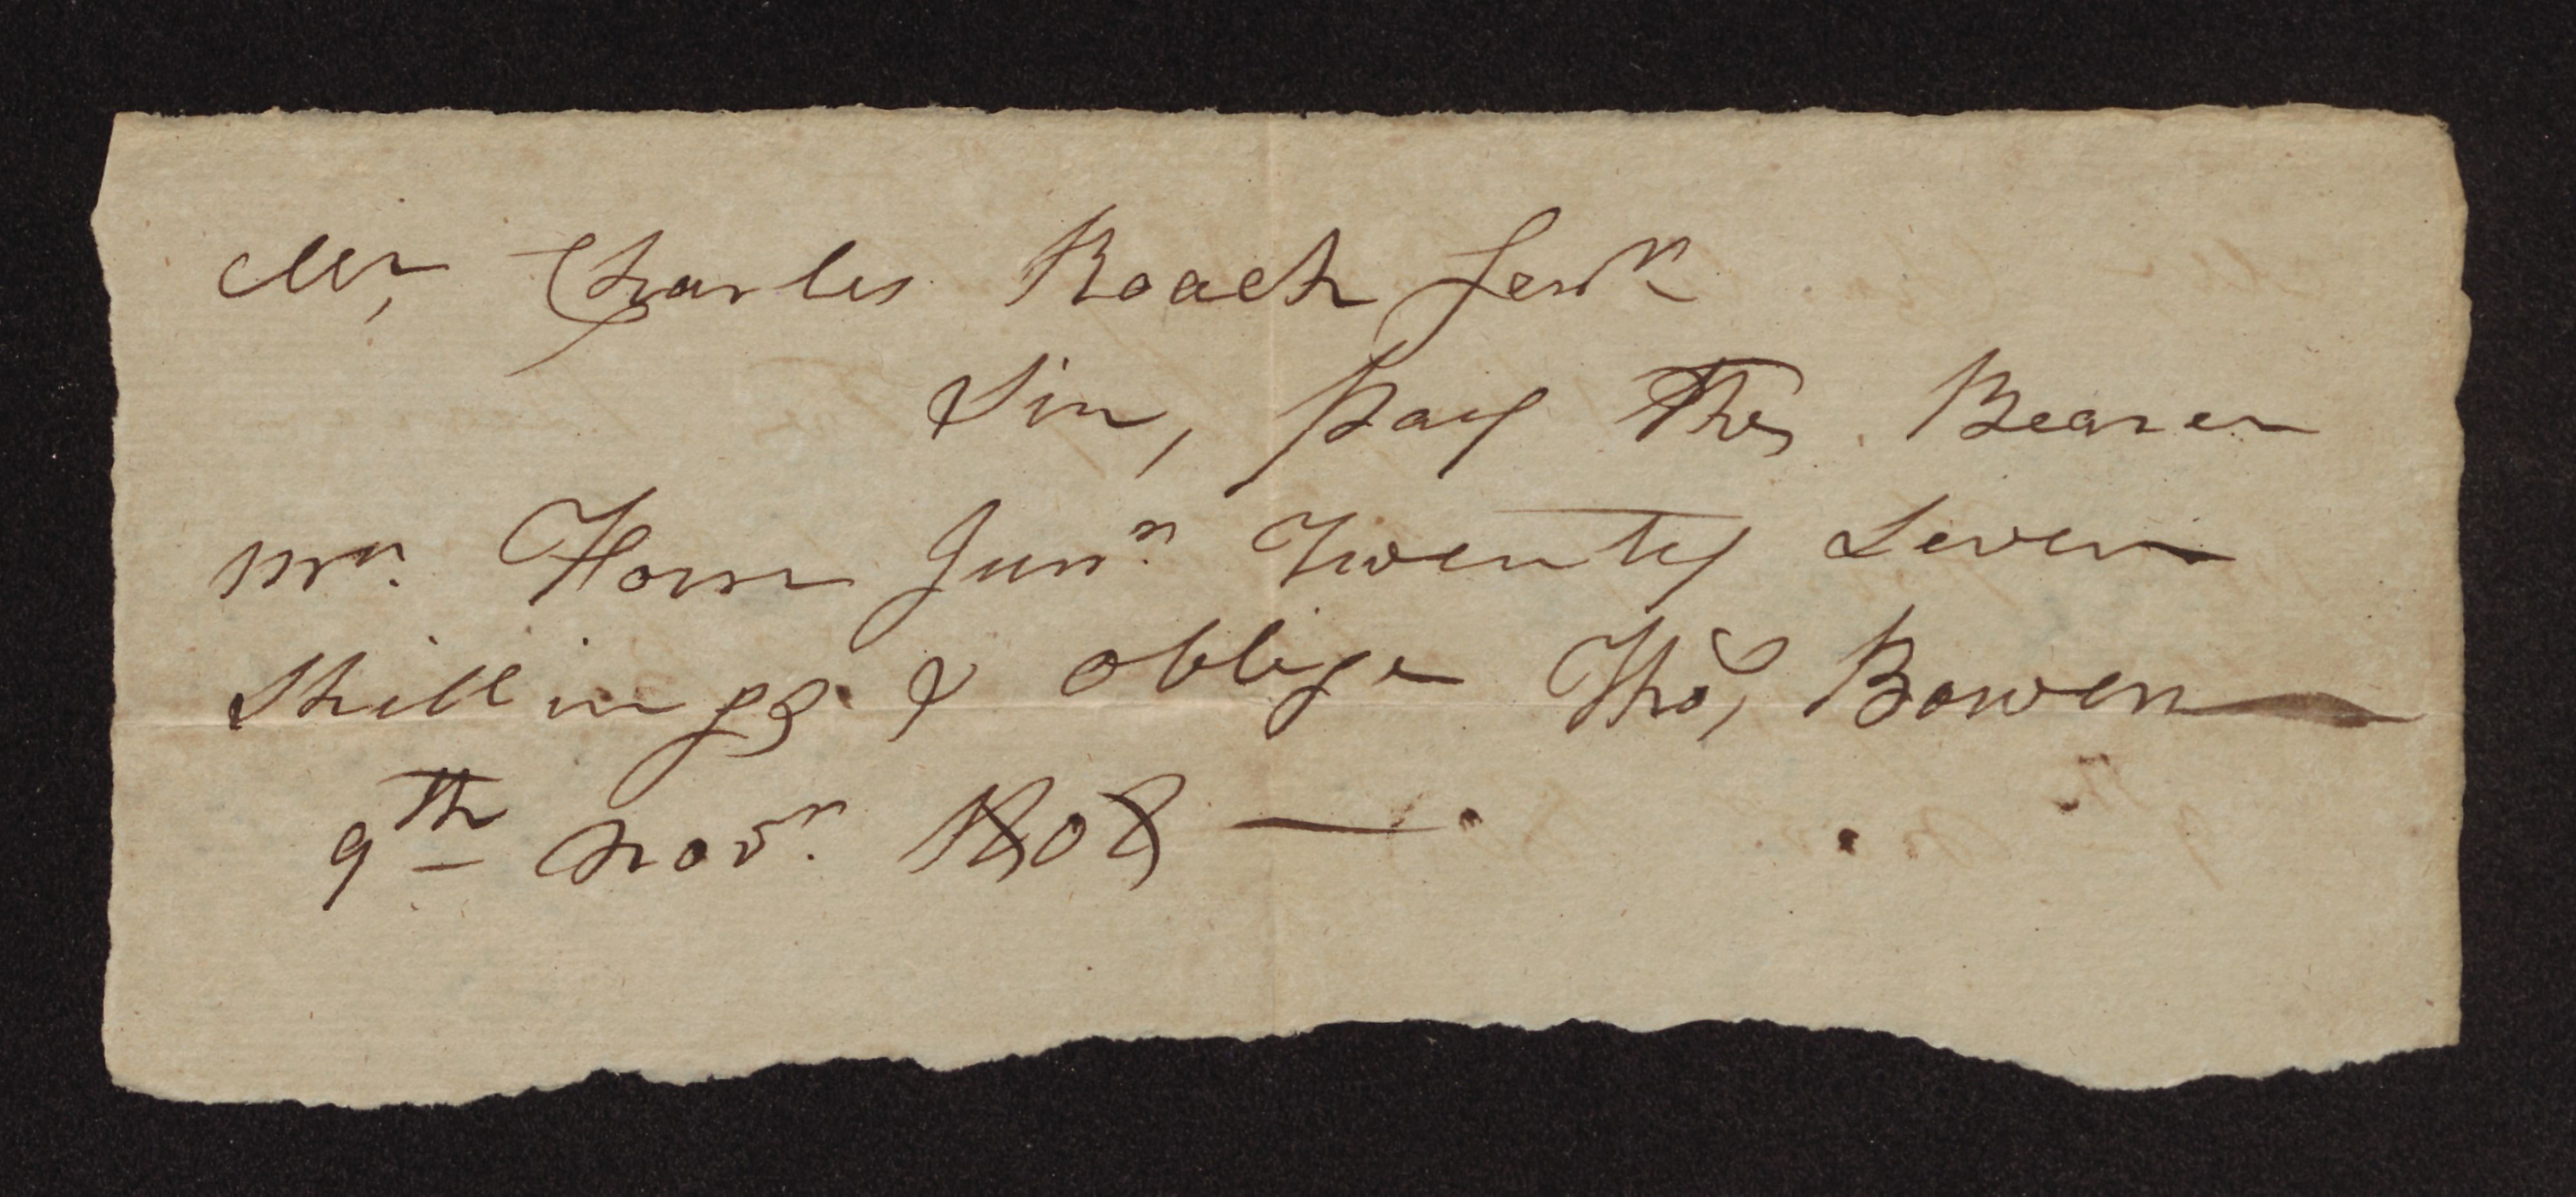 Mr, Charles Roach Senr
Sir, pay the Bearer
Mr. Horn Junr. Twenty Seven
Shillings. & oblige Thos, Bowen
9th Novr. 1808 —.